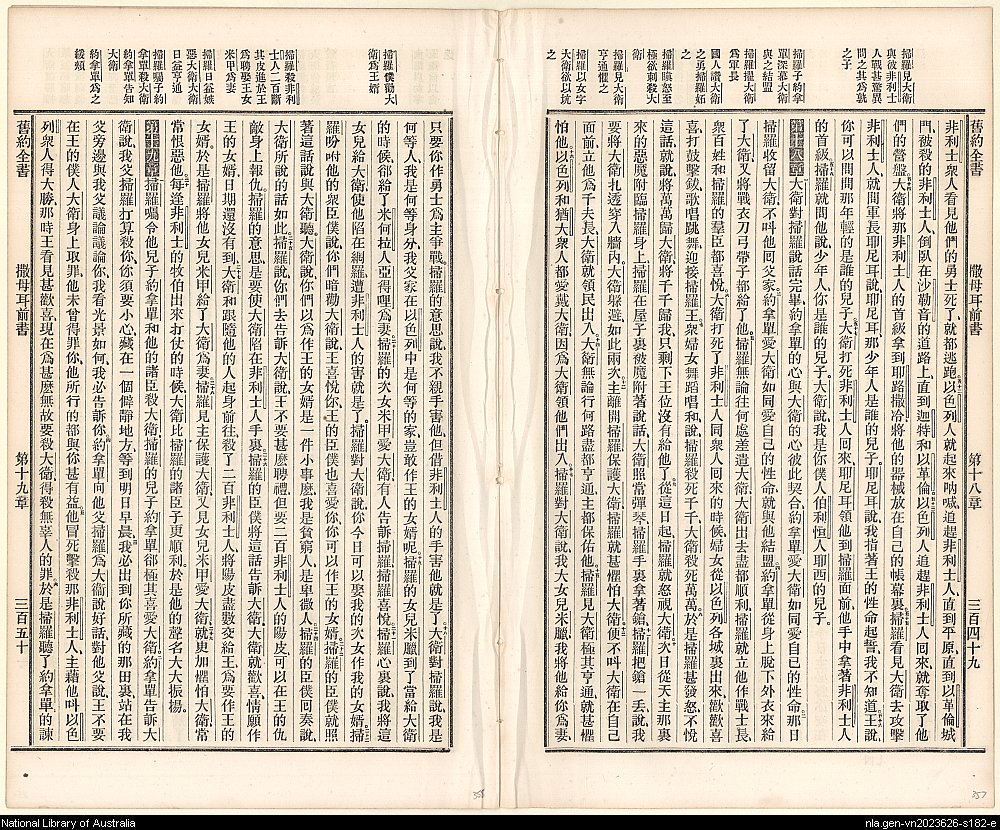 舊約全書 撒母耳前書 第十八章 三百四十九
掃羅見大衛
與彼非利士
人戰甚驚異
問之其爲孰
之子
掃羅子約拿
單深慕大衛
與之結盟
掃羅擢大衛
爲軍長
國人讚大衛
之勇掃羅妬
之
掃羅瞋怒至
極欲刺殺大
衛
掃羅見大衛
亨通懼之
掃羅以女字
大衛欲以坑
之
非利士衆人看見他們的勇士死了、就都逃跑、以色列人就起來吶喊、追趕非利士人、直到平原、直到以革倫城
門、被殺的非利士人、倒臥在沙勒音的道路上、直到迦特和以革倫、以色列人追趕非利士人回來、就奪取了他
們的營盤、大衛將那非利士人的首級、拿到耶路撒冷、將他的器械放在自己的帳幕裏、掃羅看見大衛去攻擊
非利士人、就問軍長耶尼耳說、耶尼耳、那少年人是誰的兒子、耶尼耳說、我指著王的性命起誓、我不知道、王說、
你可以問問那年輕的是誰的兒子、大衛打死非利士人回來、耶尼耳領他到掃羅面前、他手中拿著非利士人
的首級、掃羅就問他說、少年人、你是誰的兒子、大衛說、我是你僕人伯利恒人耶西的兒子。
第十八章 大衛對掃羅說話完畢、約拿單的心與大衛的心、彼此契合、約拿單愛大衛、如同愛自己的性命、那日
掃羅收留大衛、不叫他回父家、約拿單愛大衛、如同愛自己的性命、就與他結盟、約拿單從身上脫下外衣、來給
了大衛、又將戰衣刀弓帶子都給了他、掃羅無論往何處差遣大衛、大衛出去盡都順利、掃羅就立他作戰士長、
衆百姓和掃羅的羣臣都喜悅、大衛打死了非利士人、同衆人回來的時候、婦女從以色列各城裏出來、歡歡喜
喜、打鼓擊鈸、歌唱跳舞、迎接掃羅王、衆婦女舞蹈唱和說、掃羅殺死千千、大衛殺死萬萬、於是掃羅甚發怒、不悅
這話、就說、將萬萬歸大衛、將千千歸我、只剩下王位沒有給他了、從這日起、掃羅就怒視大衛、次日從天主那裏
來的惡魔附臨掃羅身上、掃羅在屋子裏被魔附著說話、大衛照常彈琴、掃羅手裏拿著鎗、掃羅把鎗一丟、說我
要將大衛扎透穿入牆內、大衛躲避、如此兩次、主離開掃羅、保護大衛、掃羅就甚懼怕大衛、便不叫大衛在自己
面前、立他爲千夫長、大衛就領民出入、大衛無論行何路、盡都亨通、主都保佑他、掃羅見大衛極其亨通、就甚懼
怕他、以色列和猶大衆人都愛戴大衛、因爲大衛領他們出入、掃羅對大衛說、我大女兒米臘、我將他給你爲妻、
舊約全書 撒母耳前書 第十九章 三百五十
掃羅僕勸大
衛爲王壻
掃羅殺非利
士人二百斷
其皮進於王
爲聘娶王女
米甲爲妻
掃羅日益嫉
惡大衛大衛
日益亨通
掃羅囑子約
拿單殺大衛
約拿單告知
大衛
約拿單爲之
緩頰
只要你作勇士、爲主爭戰、掃羅的意思說、我不親手害他、但借非利士人的手害他就是了、大衛對掃羅說、我是
何等人、我是何等身分、我父家在以色列中是何等的家、豈敢作王的女婿呢、掃羅的女兒米臘到了當給大衛
的時候、卻給了米何拉人亞得哩爲妻、掃羅的次女米甲愛大衛、有人告訴掃羅、掃羅喜悅、掃羅心裏說、我將這
女兒給大衛、使他陷在網羅、遭非利士人的害就是了、掃羅對大衛說、你今日可以娶我的次女、作我的女婿、掃
羅吩咐他的衆臣僕說、你們暗勸大衛說、王喜悅你、王的臣僕也喜愛你、你可以作王的女婿、掃羅的臣僕就照
著這話說與大衛聽、大衛說、你們以爲作王的女婿是一件小事麼、我是貧窮人、是卑微人、掃羅的臣僕回奏說、
大衛所說的話如此、掃羅說、你們去告訴大衛說、王不要甚麼聘禮、但要二百非利士人的陽皮、可以在王的仇
敵身上報仇、掃羅的意思是要使大衛陷在非利士人手裏、掃羅的臣僕將這話告訴大衛、大衛就歡喜、情願作
王的女婿、日期還沒有到、大衛和跟隨他的人、起身前往、殺了二百非利士人、將陽皮盡數交給王、爲要作王的
女婿、於是掃羅將他女兒米甲給了大衛爲妻、掃羅見主保護大衛、又見女兒米甲愛大衛、就更加懼怕大衛、常
常恨惡他、每逢非利士的牧伯出來打仗的時候、大衛比掃羅的諸臣子更順利、於是他的聲名大大振揚。
第十九章 掃羅囑令他兒子約拿單和他的諸臣殺大衛、掃羅的兒子約拿單卻極其喜愛大衛、約拿單告訴大
衛說、我父掃羅打算殺你、你須要小心、藏在一個僻靜地方、等到明日早晨、我必出到你所藏的那田裏、站在我
父旁邊、與我父議論議論你、我看光景如何、我必告訴你、約拿單向他父掃羅爲大衛說好話、對他父說、王不要
在王的僕人大衛身上取罪、他未曾得罪你、他所行的都與你甚有益、他冒死擊殺那非利士人、主藉他叫以色
列衆人得大勝、那時王看見甚歡喜、現在爲甚麼無故要殺大衛、得殺無辜人的罪、於是掃羅聽了約拿單的諫
358
357
National Library of Australia
nla.gen-vn2023626-s182-e